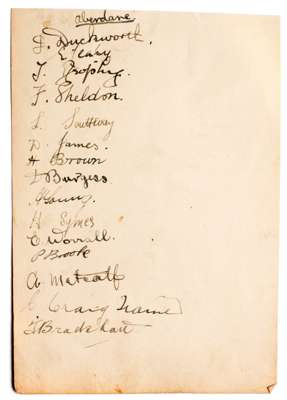 Aberdare
J. Duckworth.
E Leary
T. Brophy.
F. Sheldon.
L. Southway
D. James.
H Brown
D Burgess
H Symes
E. Worrall.
P Brook
A Metcalf
Craig Trainer
J Bradshaw